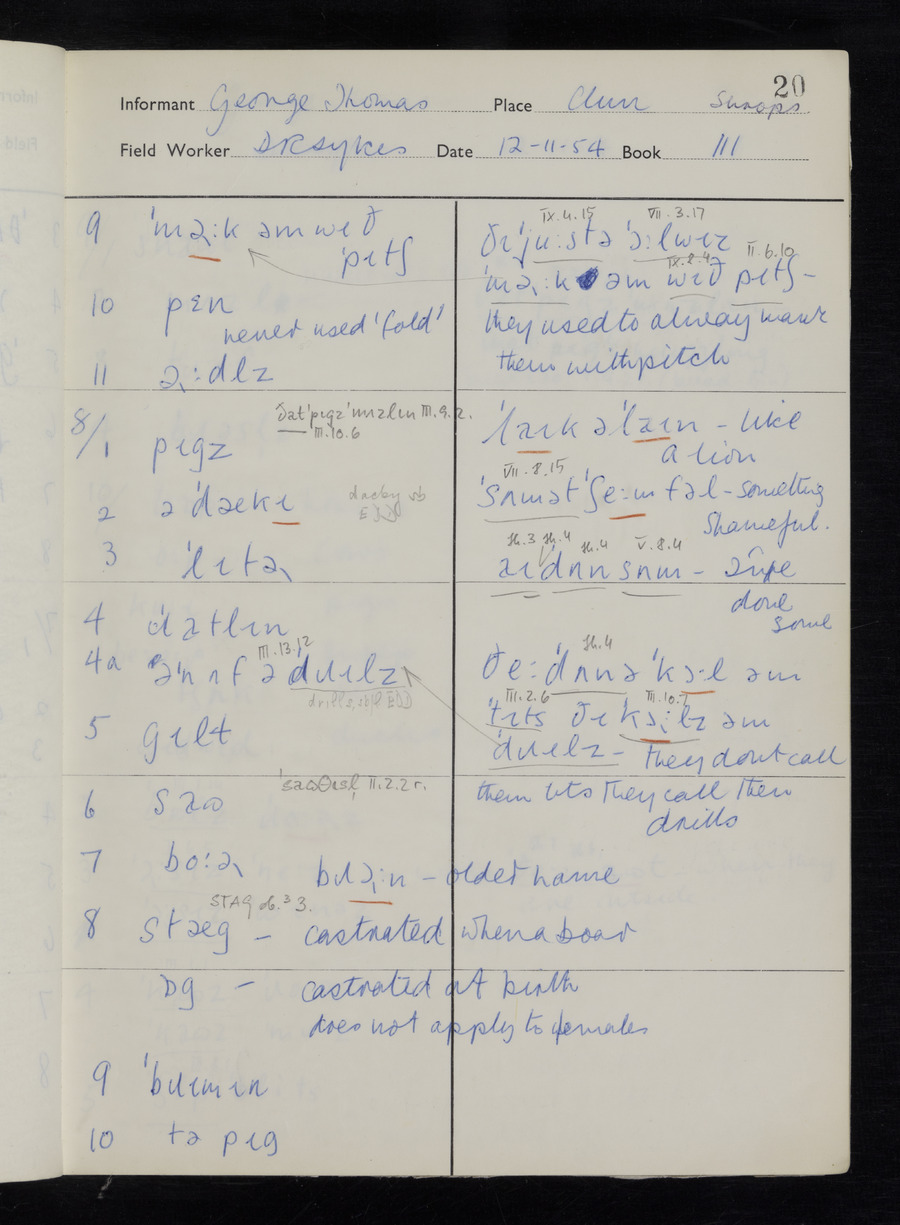 20
Informant George Thomas Place Clun Shrops
Field Worker D R Sykes Date 12-11-54 Book III
9 ˈmɜ˞:k əm wɪð
ˈpɪtʃ
10 pɛn
never used 'fold'
11 ə˞:dlz
8/1 pɪgz
III.9.2.
III.10.6
2 ə ˈdækɪ
dacky sb
EDD
3 ˈlɪtə˞
4 ˈdatlɪn
4a əˈnʌf ə dɹɪlz
III.13.12
drill, sb EDD
5 gɪlt
6 saʊ
II.2.2 r.
7 bo:ə˞
bɹɔ:n – older name
8 stæg – castrated when a boar
STAG sb.³ 3.
ɒg – castrated at birth
does not apply to females
9 ˈbɹɪmɪn
10 tə pɪg
IX.4.15 VII.3.17
ðɪ ˈju:stə ˈɔ:lwɪz
IX.2.4 II.6.10
ˈmɜ˞:k əm wɪð pɪtʃ –
they used to alway mark
them with pitch
ˈlaɪk ə ˈlaɪn – like
a lion
VII.8.15
ˈsʌmət ˈʃe:mfəl – something
shameful.
V.8.4
aɪ dʌn sʌm – I've
done
some
ðe: ˈdʌnə ˈkɔ:l əm
III.2.6 III.10.7
ˈtɪts ðɪ ˈkɔ:lz əm
ˈdɹɪlz – they dont call
them tits they call them
drills